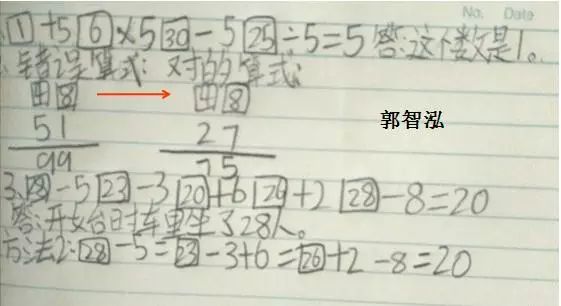 No. Date
1+5 6×5 30-5 25÷5=5 答:这个数是1。
错误算式: 对的算式:
田 8 → 田 8
51 27
99 75
郭智泓
3. 28-5 23-3 20+6 26+2 28-8=20
答:开始台时车里坐了28人。
方法2:28-5=23-3+6=26+2-8=20